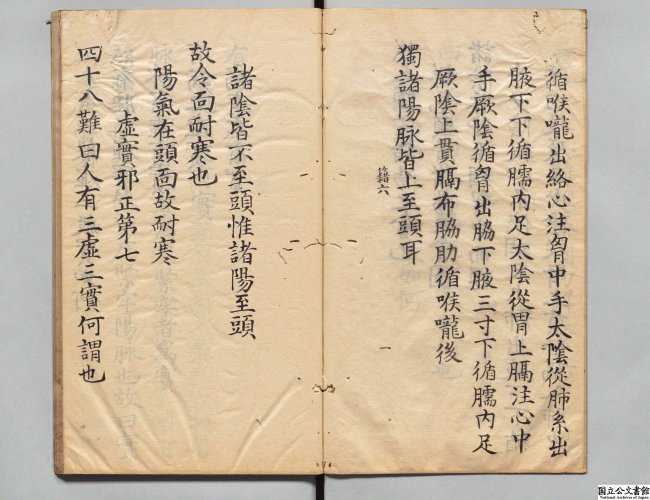 循喉嚨出絡心注胷中手太陰從肺系出
腋下下循臑内足太陰從胃上膈注心中
手厥陰循胷出脇下腋三寸下循臑内足
厥陰上貫膈布脇肋循喉嚨後
獨諸陽脉皆上至頭耳
籍六
一
諸陰皆不至頭惟諸陽至頭
故令面耐寒也
陽氣在頭面故耐寒
虛實邪正第七
四十八難曰人有三虛三實何謂也
国立公文書館
National Archives of Japan